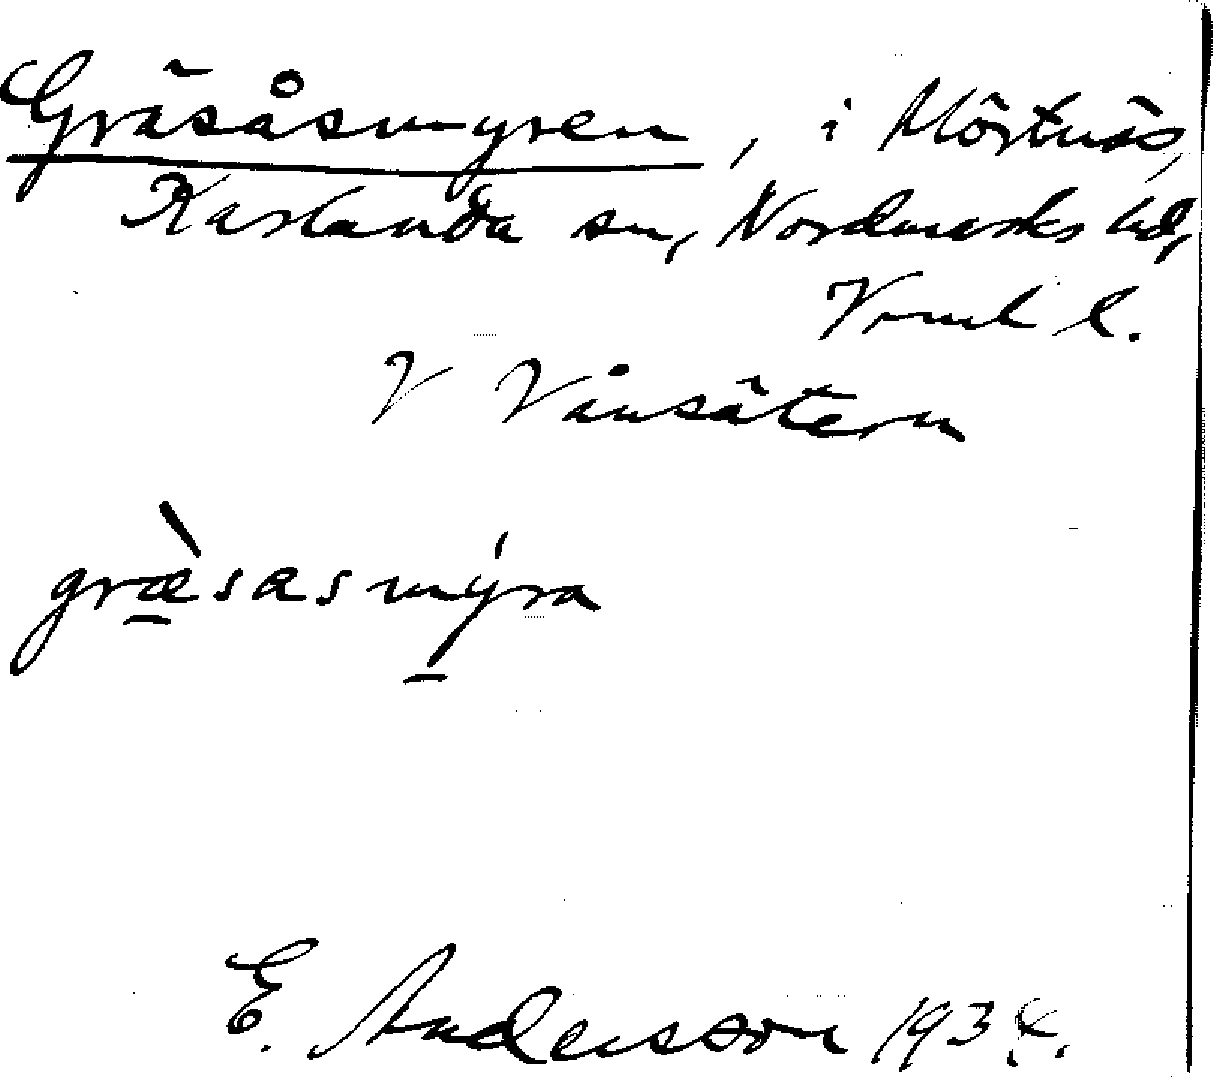 Gräsåsmyren, i Mörtnäs,
Karlanda sn, Nordmarks hd,
Vrml l.
V Vånsätern
græ̀sasmýra
E. Andersson 1934.